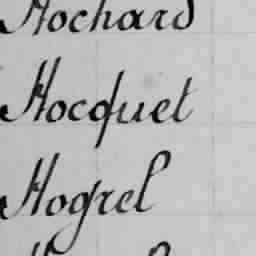 Hochard
Hocquet
Hogrel